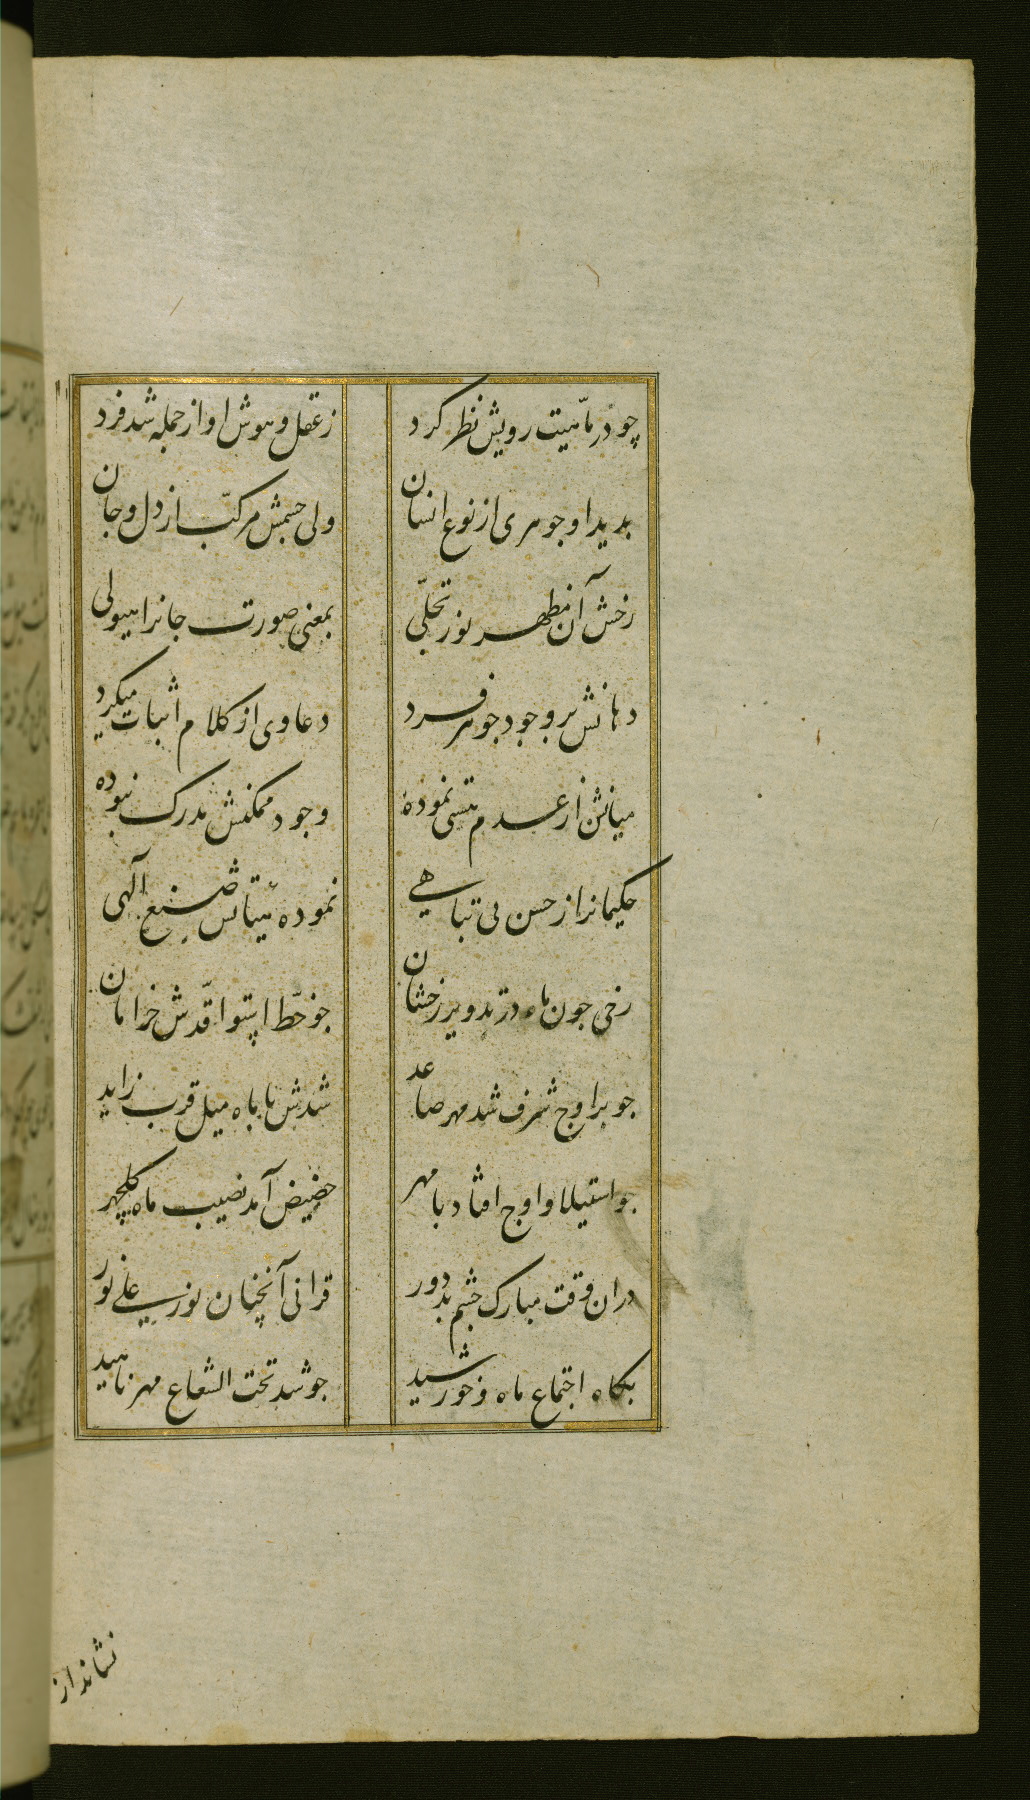 چو در ماهیت رویش نظر کرد
ز عقل و هوش او از جمله شد فرد
بدید او جوهری از نوع انسان
ولی جسمش مرکّب از دل و جان
رخش آن مظهر نور تجلّی
بمعنی صورت جانرا هیولی
دهانش بر وجود جوهر فرد
دعاوی از کلام اثبات میکرد
میانش از عدم هستی نموده
وجود ممکنش مدرک نبوده
حکیمانرا ز حسن بی تباهی
نموده صنع الهی
رخی چون ماه در تدویر رخشان
چو خطّ استوا قدّش خرامان
چو بر اوج شرف شد مهر صاعد
شدش با ماه میل قرب زاید
چو استیلا و اوج افتاد با مهر
حضیض آمد نصیب ماه گلچهر
دران وقت مبارک چشم بد دور
قرانی آنچنان نور علی نور
بگاه اجتماع ماه و خورشید
چو شد تحت الشعاع مهر ناهید
نشانداز